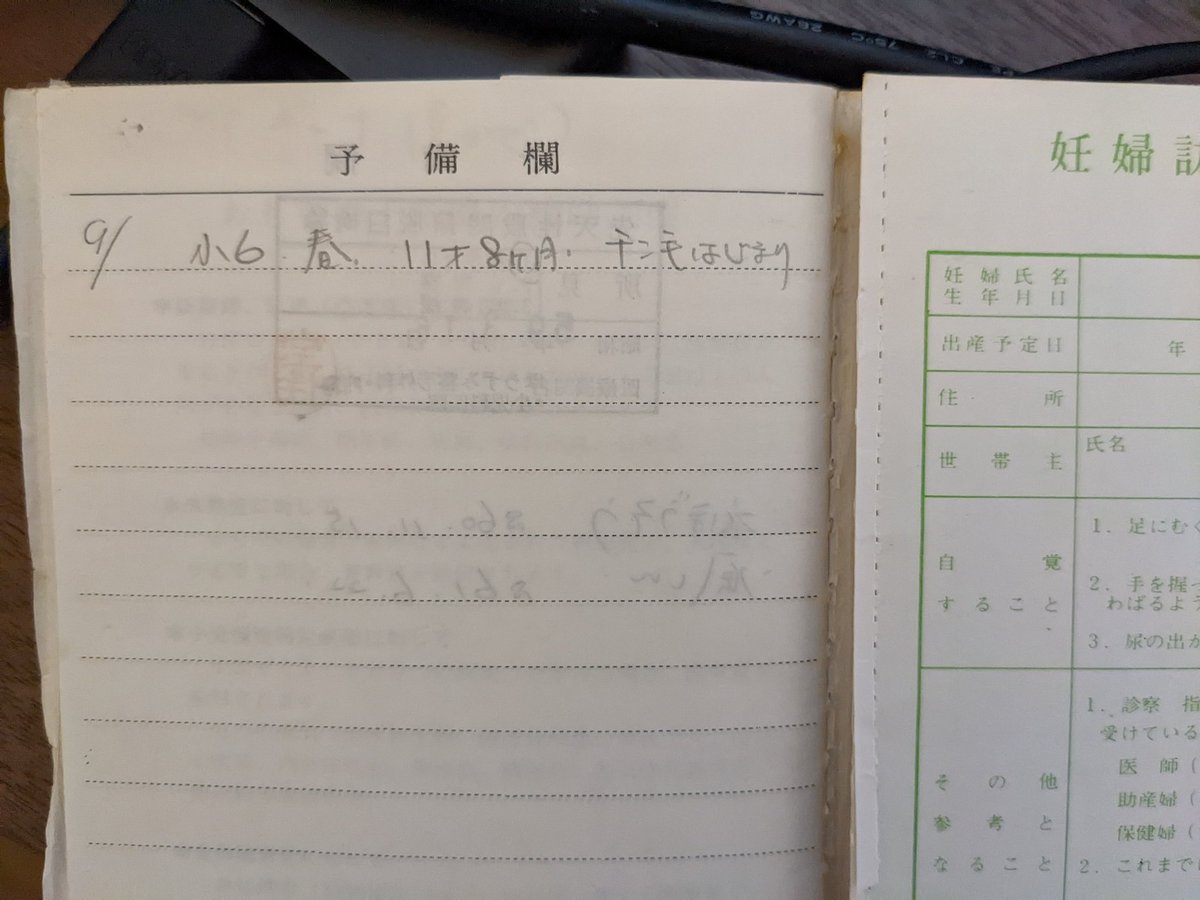 26AWG 75°C CL2
予備欄
9/ 小6 春. 11才8ヶ月. チン毛はじまり
水ぼうそう S60.11.15
風しん
妊婦
妊婦氏名
生年月日
出産予定日 年
住所
世帯主 氏名
自覚
すること
1. 足にむ
2. 手を握っ
わばるよう
3. 尿の出が
その他
参考と
なること
1. 診察 指
受けている
医師(
助産婦(
保健婦(
2. これまで